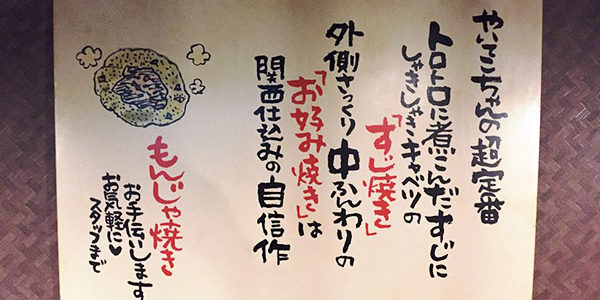 やいてこちゃんの超定番
トロトロに煮こんだすじに
しゃきしゃきキャベツの
「すじ焼き」
外側さっくり中ふんわりの
「お好み焼き」は
関西仕込みの自信作
もんじゃ焼き
お手伝いします
お気軽に♥
スタッフまで